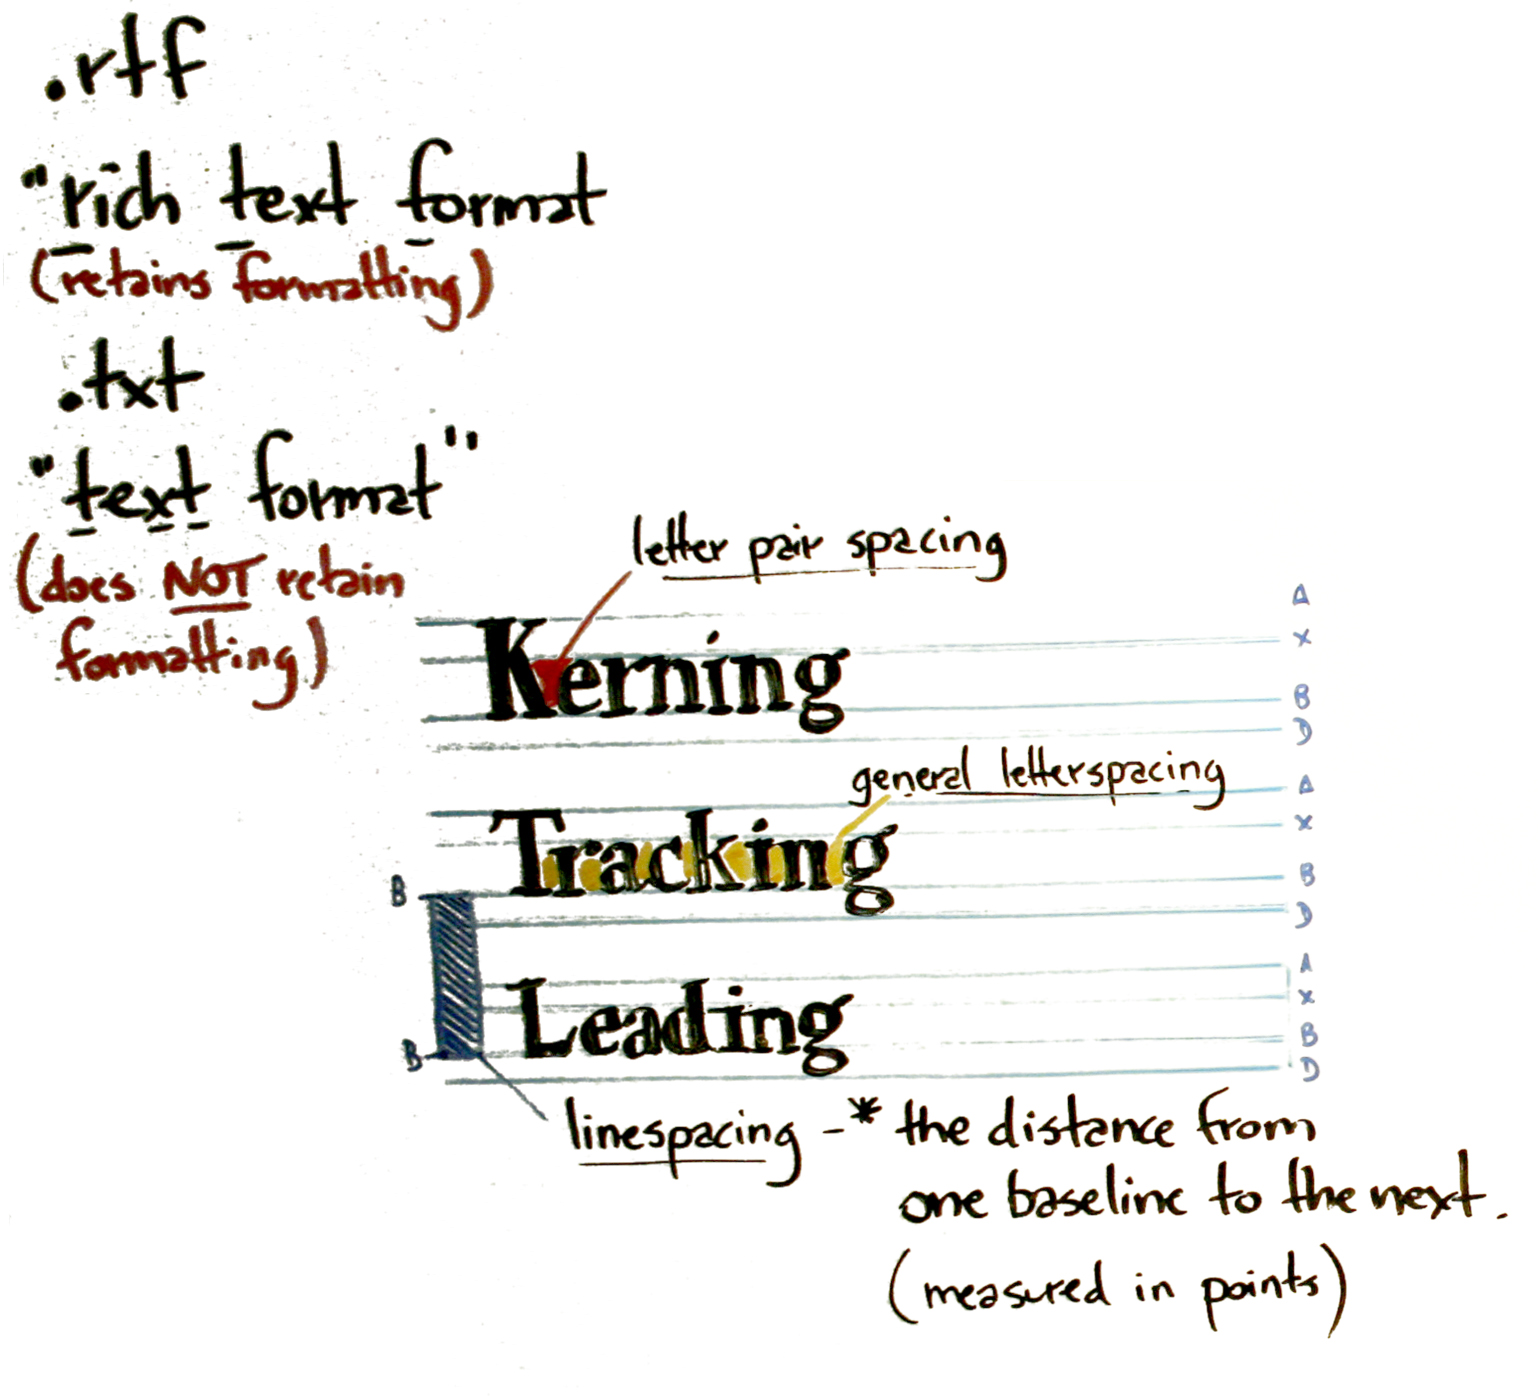 .rtf
"rich text format
(retains formatting)
.txt
"text format"
(does NOT retain
formatting)
letter pair spacing
A
Kerning
X
B
D
general letterspacing
A
Tracking
X
B
B
D
A
Leading
X
B
B
D
linespacing - * the distance from
one baseline to the next.
(measured in points)